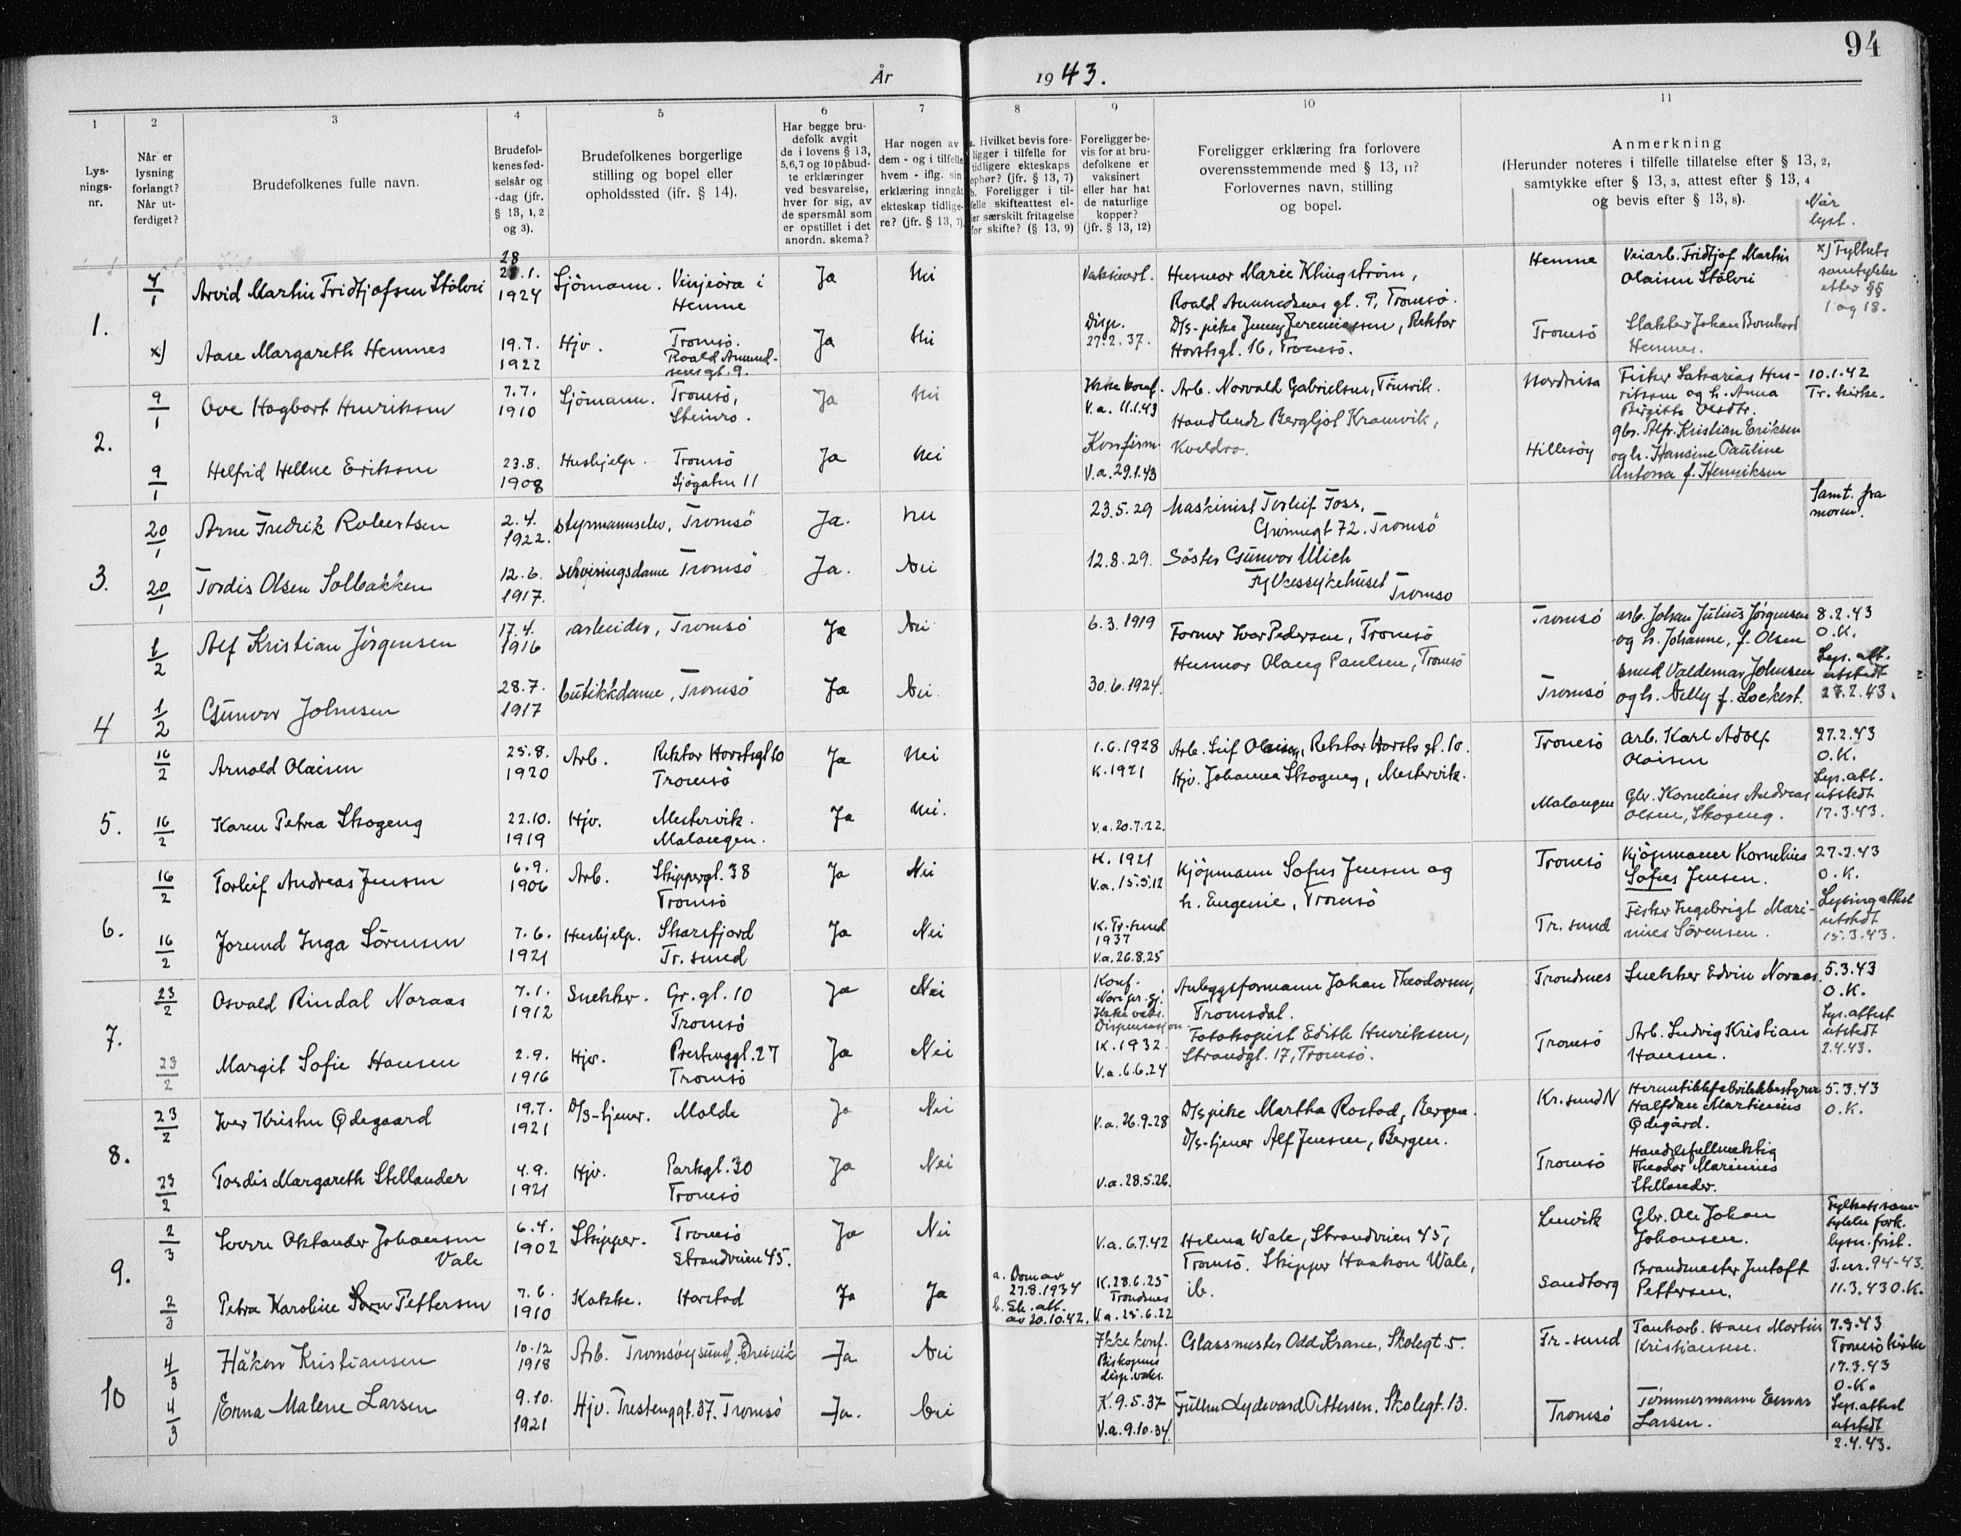 94
År 1943.
1 2 3 4 5 6 7 8 9 10 11
Lys-
nings-
nr.
Når er
lysning
forlangt?
Når ut-
ferdiget?
Brudefolkenes fulle navn.
Brudefol-
kenes fød-
selsår og
-dag (jfr.
§ 13, 1, 2
og 3).
Brudefolkenes borgerlige
stilling og bopel eller
opholdssted (jfr. § 14).
Har begge bru-
defolk avgit
de i lovens § 13,
5, 6, 7 og 10 påbud-
te erklæringer
ved besvarelse,
hver for sig, av
de spørsmål som
er opstillet i det
anordn. skema?
Har nogen av
dem - og i tilfelle
hvem - iflg. sin
erklæring inngåt
ekteskap tidlige-
re? (jfr. § 13, 7).
a. Hvilket bevis fore-
ligger i tilfelle for
tidligere ekteskaps
ophør? (jfr. § 13, 7)
b. Foreligger i til-
felle skifteattest el-
ler særskilt fritagelse
for skifte? (§ 13, 9)
Foreligger be-
vis for at bru-
defolkene er
vaksinert
eller har hat
de naturlige
kopper?
(jfr. § 13, 12)
Foreligger erklæring fra forlovere
overensstemmende med § 13, 11?
Forlovernes navn, stilling
og bopel.
Anmerkning
(Herunder noteres i tilfelle tillatelse efter § 13, 2,
samtykke efter § 13, 3, attest efter § 13, 4
og bevis efter § 13, 8).
Når
lyst.
1.
4/1 Arvid Martin Fridtjofsen Stølvi 28.1. 1924 Sjömann. Vinjeöra i Hemne Ja Nei Vaksinert. Husmor Marie Klingstrøm, Roald Amundsens gt. 9, Tromsö. Hemne Veiarb. Fridtjof Martin Olaisen Stölvi x) Fylkets samtykke etter §§ 1 og 18.
x) Aase Margareth Hemnes 19.7. 1922 Hjv. Tromsö. Roald Amund-sensgt. 9. Ja Nei Disp. 27.2.37. D/s-pike Jenny Jeremiassen, Rektor Horstsgt. 16, Tromsö. Tromsö Slakter Johan Bernhard Hemnes.
2.
9/1 Ove Hagbart Henriksen 7.7. 1910 Sjömann. Tromsö, Steinro. Ja Nei Ikke konf. V.a. 11.1.43 Arb. Norvald Gabrielsen, Tönsvik. Nordreisa Fisker Sakarias Hen-riksen og h. Anna Bergitte Olsdtr. 10.1.42 Tr. kirke.
9/1 Helfrid Hellne Eriksen 23.8. 1908 Hushjelp. Tromsö Sjögaten 11 Ja Nei Konfirm. V.a. 29.1.43 Handlende Bergljot Kramvik, Kvaldra. Hillesöy gbr. Alfr. Kristian Eriksen og h. Hansine Pauline Antona f. Henriksen
3.
20/1 Arne Fredrik Robertsen 2.4. 1922. Styrmannselev, Tromsö Ja. Nei 23.5.29 Maskinist Torleif Foss, Grönnegt 72. Tromsö Samt. fra moren.
20/1 Tordis Olsen Solbakken 12.6. 1917. serveringsdame Tromsö Ja. Nei 12.8.29. Söster Gunvor Ulich Fylkessykehuset Tromsö
4
1/2 Alf Kristian Jörgensen 17.4. 1916 arbeider, Tromsö Ja Nei 6.3.1919 Former Ivar Pedersen, Tromsö Tromsö arb. Johan Julius Jörgensen og h. Johanne, f. Olsen 8.2.43 O.K.
1/2 Gunvor Johnsen 28.7. 1917 butikkdame, Tromsö Ja Nei. 30.6.1924. Husmor Olaug Paulsen, Tromsö Tromsö smed Valdemar Johnsen og h. Nelly f. Lockert. Lys. att. utstedt 27.2.43.
5.
16/2 Arnold Olaisen 25.8. 1920 Arb. Rektor Horstsgt 10 Tromsö Ja Nei 1.6.1928 K.1921 Arb. Leif Olaisen, Rektor Horsts gt. 10. Tromsö Arb. Karl Adolf Olaisen 27.2.43 O.K.
16/2 Karen Petra Skogeng 22.10. 1919 Hjv. Mestervik. Malangen. Ja Nei. V.a. 20.7.22. Hjv. Johanna Skogeng, Mestervik. Malangen Gbr. Kornelius Andreas Olsen, Skogeng. Lys. att. utstedt 17.3.43.
6.
16/2 Torleif Andreas Jensen 6.9. 1906 Arb. Skippergt. 38 Tromsö Ja Nei K. 1921 V.a. 15.5.12 Kjöpmann Sofus Jensen og h. Eugenie, Tromsö Tromsö Kjöpmann Kornelius Sofus Jensen. 27.2.43 O.K.
16/2 Jorund Inga Sörensen 7.6. 1921 Hushjelp. Skarsfjord Tr. sund Ja Nei K. Tr-sund 1937 V.a. 26.8.25 Tr. sund Fisker Ingebrigt Mari-nius Sörensen. Lysingattest utstedt 15.3.43.
7.
23/2 Osvald Rindal Noraas 7.1. 1912 Snekker. Gr. gt. 10 Tromsö Ja Nei Konf. Ikke vaks. Dispensasjon Anleggsformann Johan Theodorsen, Tromsdal. Trondnes Snekker Edvin Noraas. 5.3.43 O.K.
23/2 Margit Sofie Hansen 2.9. 1916 Hjv. Prestenggt. 27 Tromsö Ja Nei K. 1932. V.a. 6.6.24 Fotokopist Edith Henriksen, Strandgt. 17, Tromsö. Tromsö Arb. Ludvig Kristian Hansen. Lys. attest utstedt 2.4.43.
8.
23/2 Iver Kristen Ødegaard 19.7. 1921 D/s-tjener. Molde Ja Nei V.a. 26.9-28 D/s pike Martha Rostad, Bergen. Kr. sund N Hermetikkfabrikkbestyrer Halfdan Martinius Ødegård. 5.3.43 O.K.
23/2 Tordis Margareth Stellander 4.9. 1921 Hjv. Parkgt. 30 Tromsö Ja Nei V.a. 28.5.26. D/s-tjener Alf Jensen, Bergen. Tromsö Handelsfullmektig Theodor Marinius Stellander.
9.
2/3 Sverre Oktander Johansen Vale 6.4. 1902 Skipper. Tromsö Strandveien 45. Ja Nei V.a. 6.7.42 Helena Wale, Strandveien 45, Tromsö. Skipper Haakon Wale, ib. Lenvik Gbr. Ole Johan Johansen. Fylkets sam-tykke fork. lysn. frist. J.nr. 94-43.
2/3 Petra Karoline Pettersen 7.6. 1910 Kokke. Harstad Ja Ja a. Dom av 27.8.1934 b. Sk. att. av 20.10.42. K. 28.6.25 Trondnes V.a. 25.6.22 Sandtorg Brandmester Jentoft Pettersen. 11.3.43 O.K.
10
4/3 Håkon Kristiansen 10.12 1918 Arb. Tromsöysund. Ja Nei Ikke konf. Biskopens disp. vaks. Glassmester Odd Krane, Skolegt. 5. Tr-sund Tankarb. Hans Martin Kristiansen. 7.3.43 Tromsö kirke 17.3.43 O.K.
4/3 Erna Malene Larsen 9.10. 1921 Hjv. Prestenggt. 37. Tromsö Ja. Nei K. 9.5.37 V.a. 9.10.34. Lydevard Pettersen. Skolegt. 13. Tromsö Tömmermann Einar Larsen. Lys. attest utstedt 2.4.43.